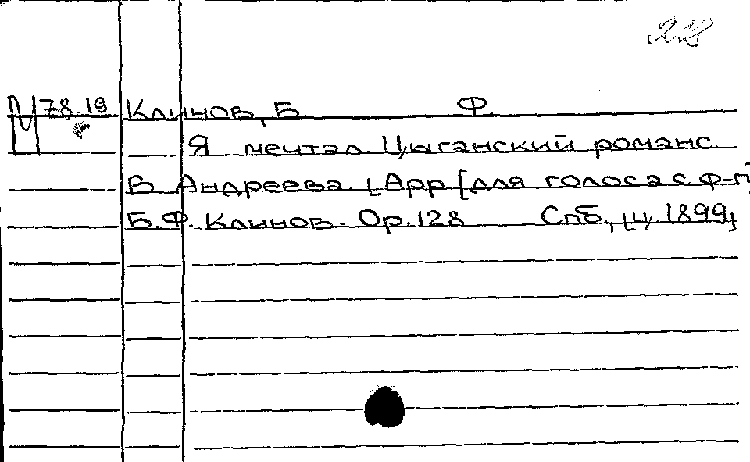 78.19 Климов, Б Ф.
Я мечтал Цыганский романс
Б Андреева. [Арр [для голоса с ф-п
Б.Ф. Климов. Ор.128 Спб., ц. 1899]